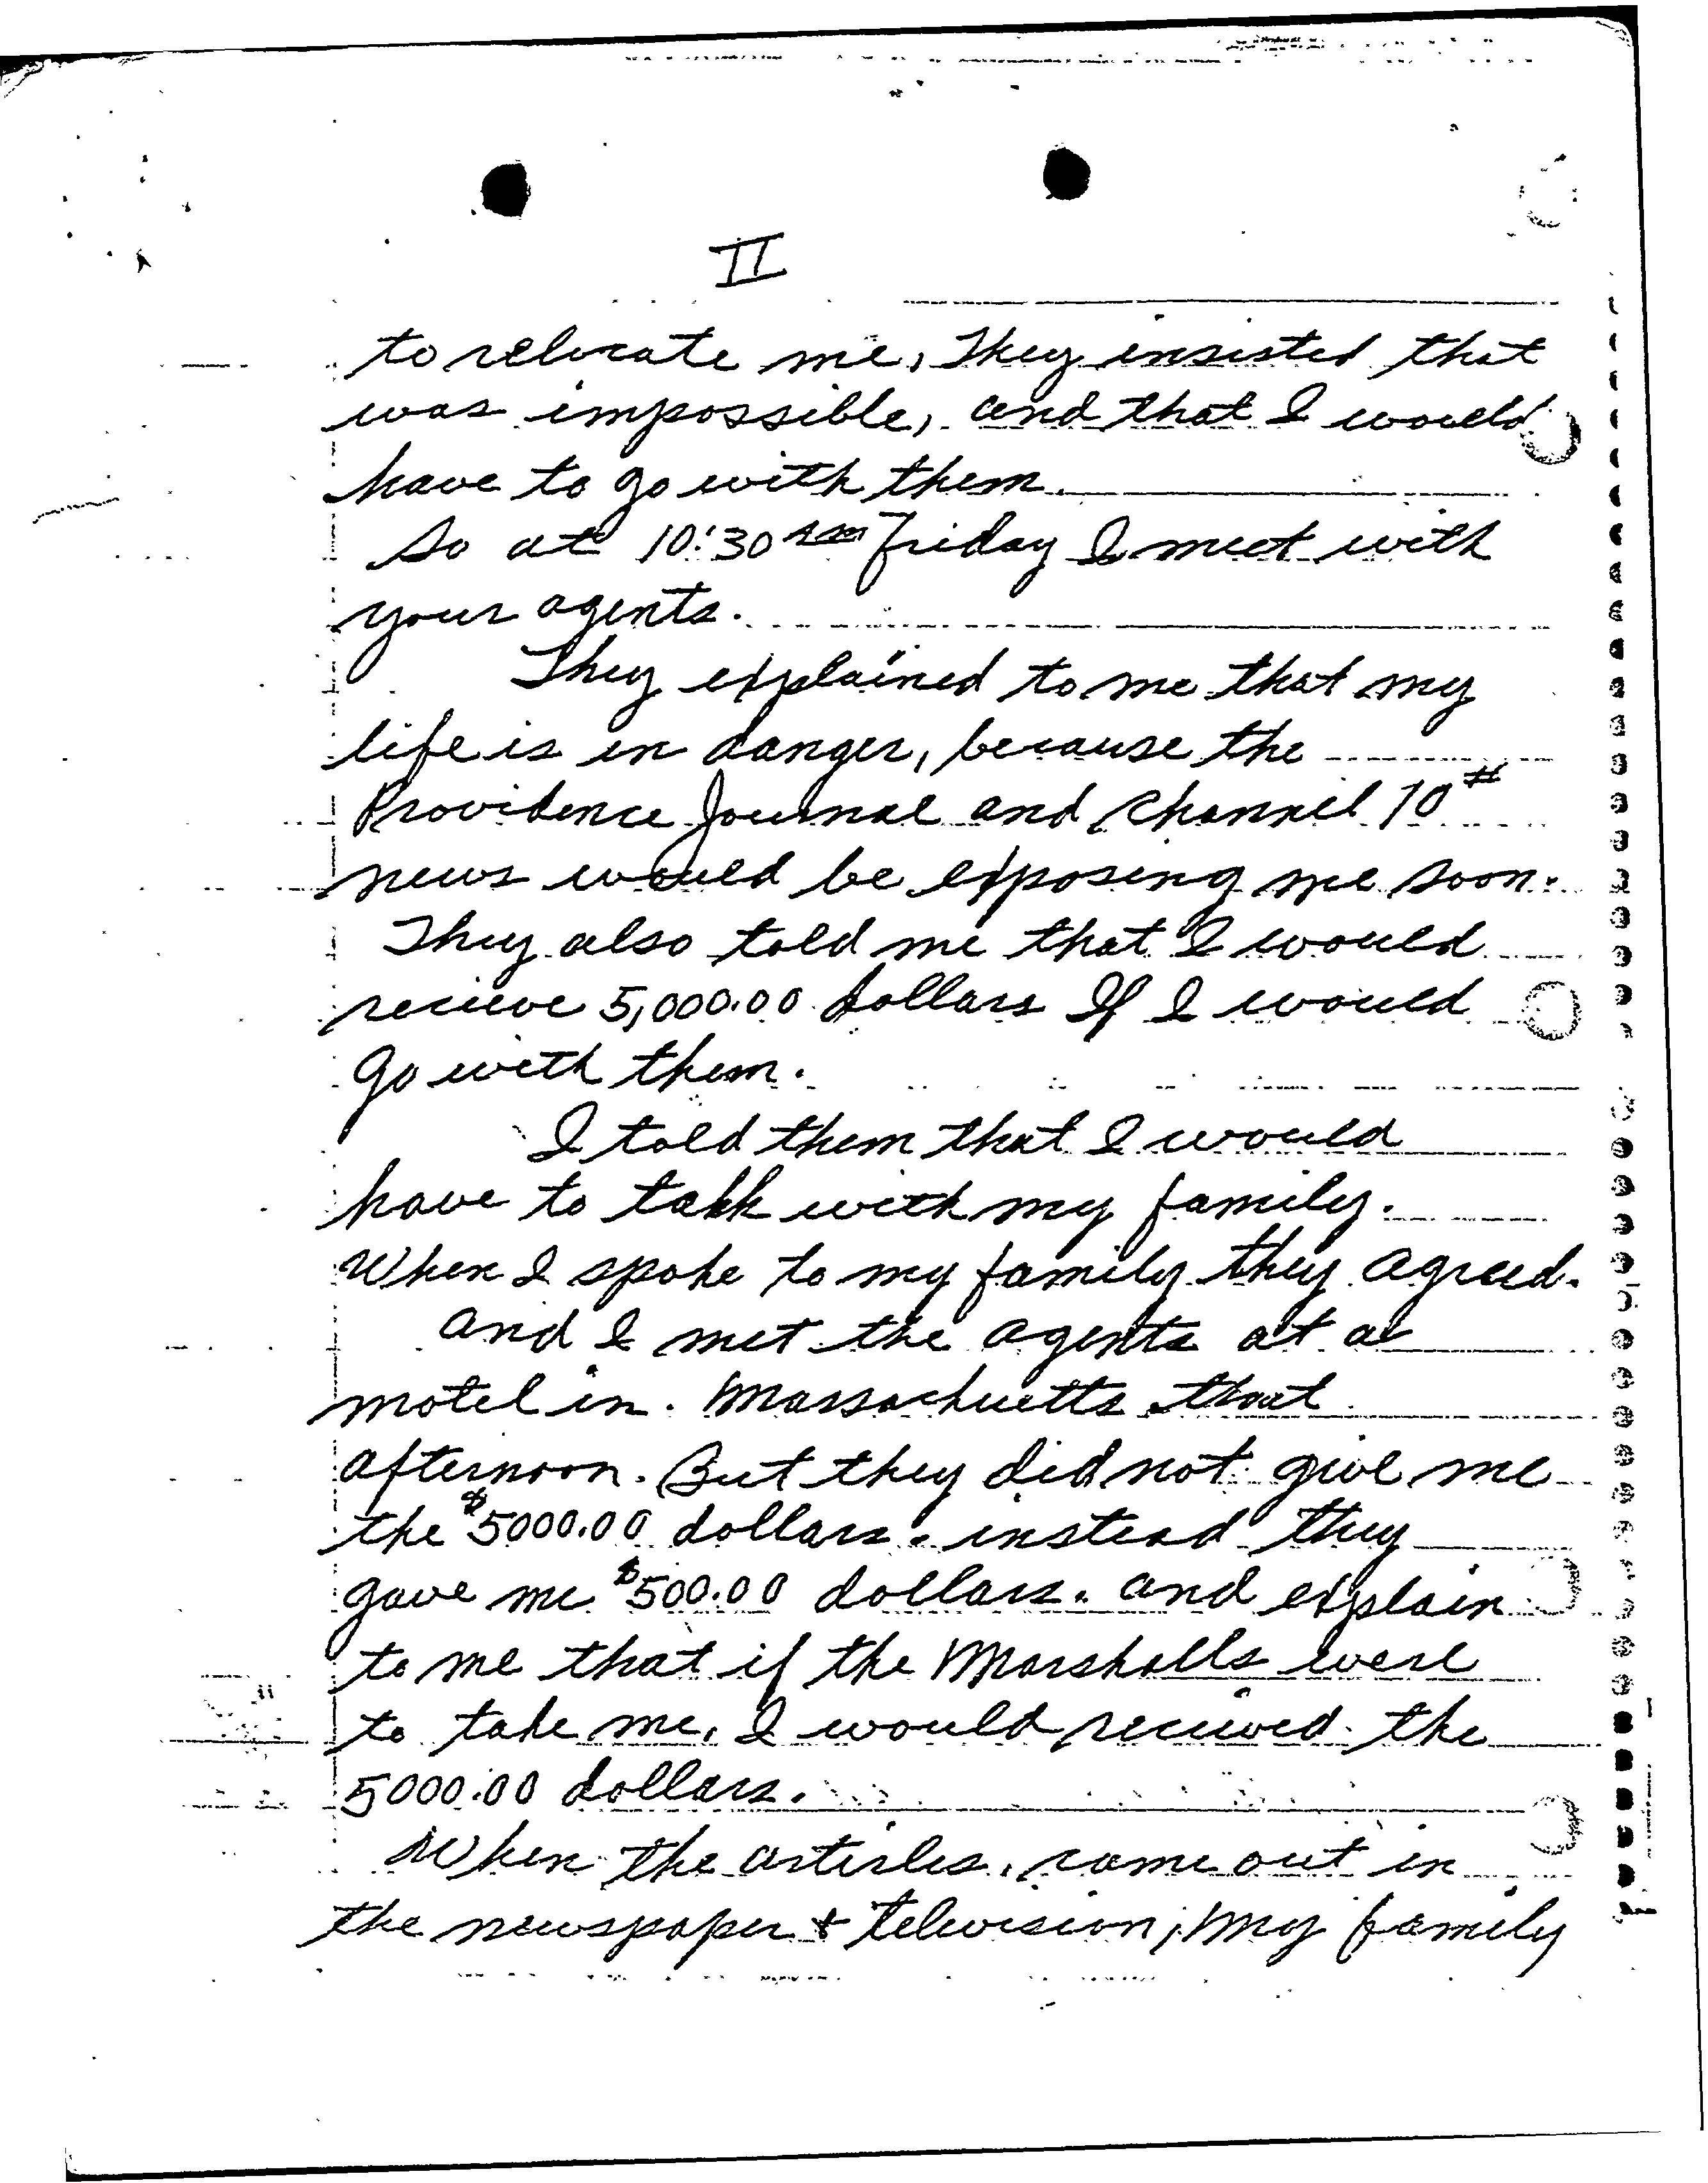 II
to relocate me, They insisted that
was impossible, and that I would
have to go with them.
So at 10:30 am Friday I meet with
your agents.
They explained to me that my
life is in danger, because the
Providence Journal and Channel 10#
news would be exposing me soon.
They also told me that I would
recieve 5,000.00 dollars If I would
go with them.
I told them that I would
have to talk with my family.
When I spoke to my family they agreed.
and I met the agents at a
motel in. Massachuetts that
afternoon. But they did not give me
the $5000.00 dollars. instead they
gave me $500.00 dollars. and explain
to me that if the Marshalls were
to take me, I would recieved the
5000.00 dollars.
When the articles, come out in
the newspaper & television, my family